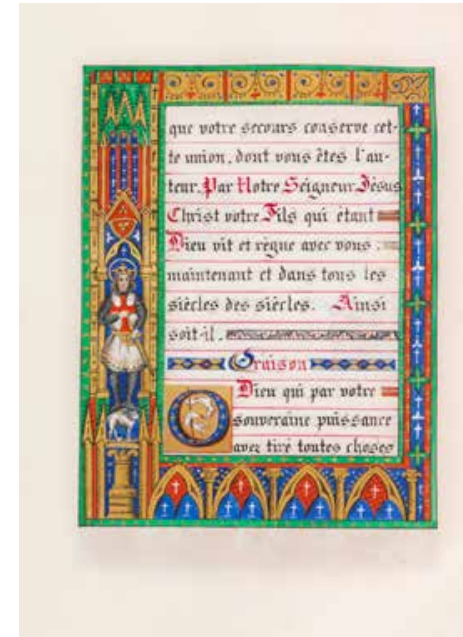 que votre secours conserve cet-
te union, dont vous êtes l'au-
teur. Par Notre Seigneur Jésus
Christ votre Fils qui étant
Dieu vit et règne avec vous
maintenant et dans tous les
siècles des siècles. Ainsi
soit-il.
Oraison
O Dieu qui par votre
souveraine puissance
avez tiré toutes choses